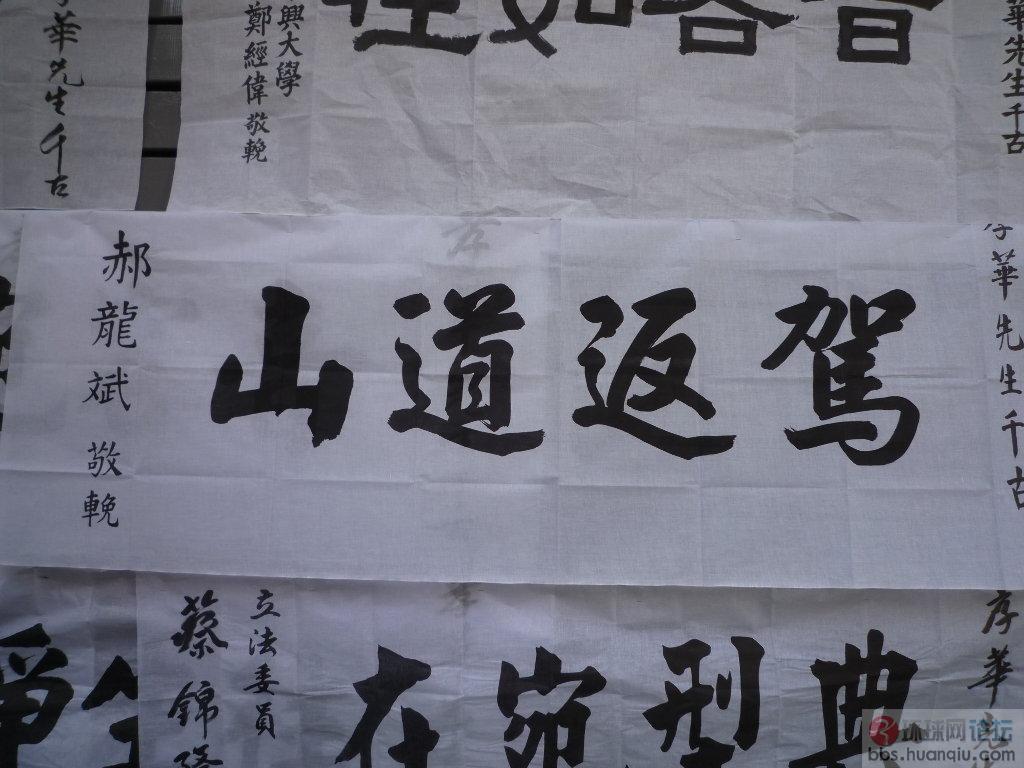 華先生千古
音容如在
興大學
鄭經偉敬輓
華先生千古
存華先生千古
駕返道山
郝龍斌敬輓
存華先
典型宛在
立法委員
蔡錦
环球网论坛
bbs.huanqiu.com